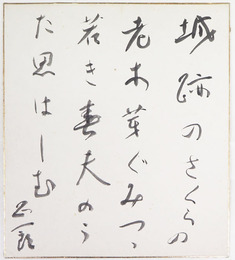 城跡のさくらの
老木芽ぐみつつ
若き春夫のう
た思はしむ